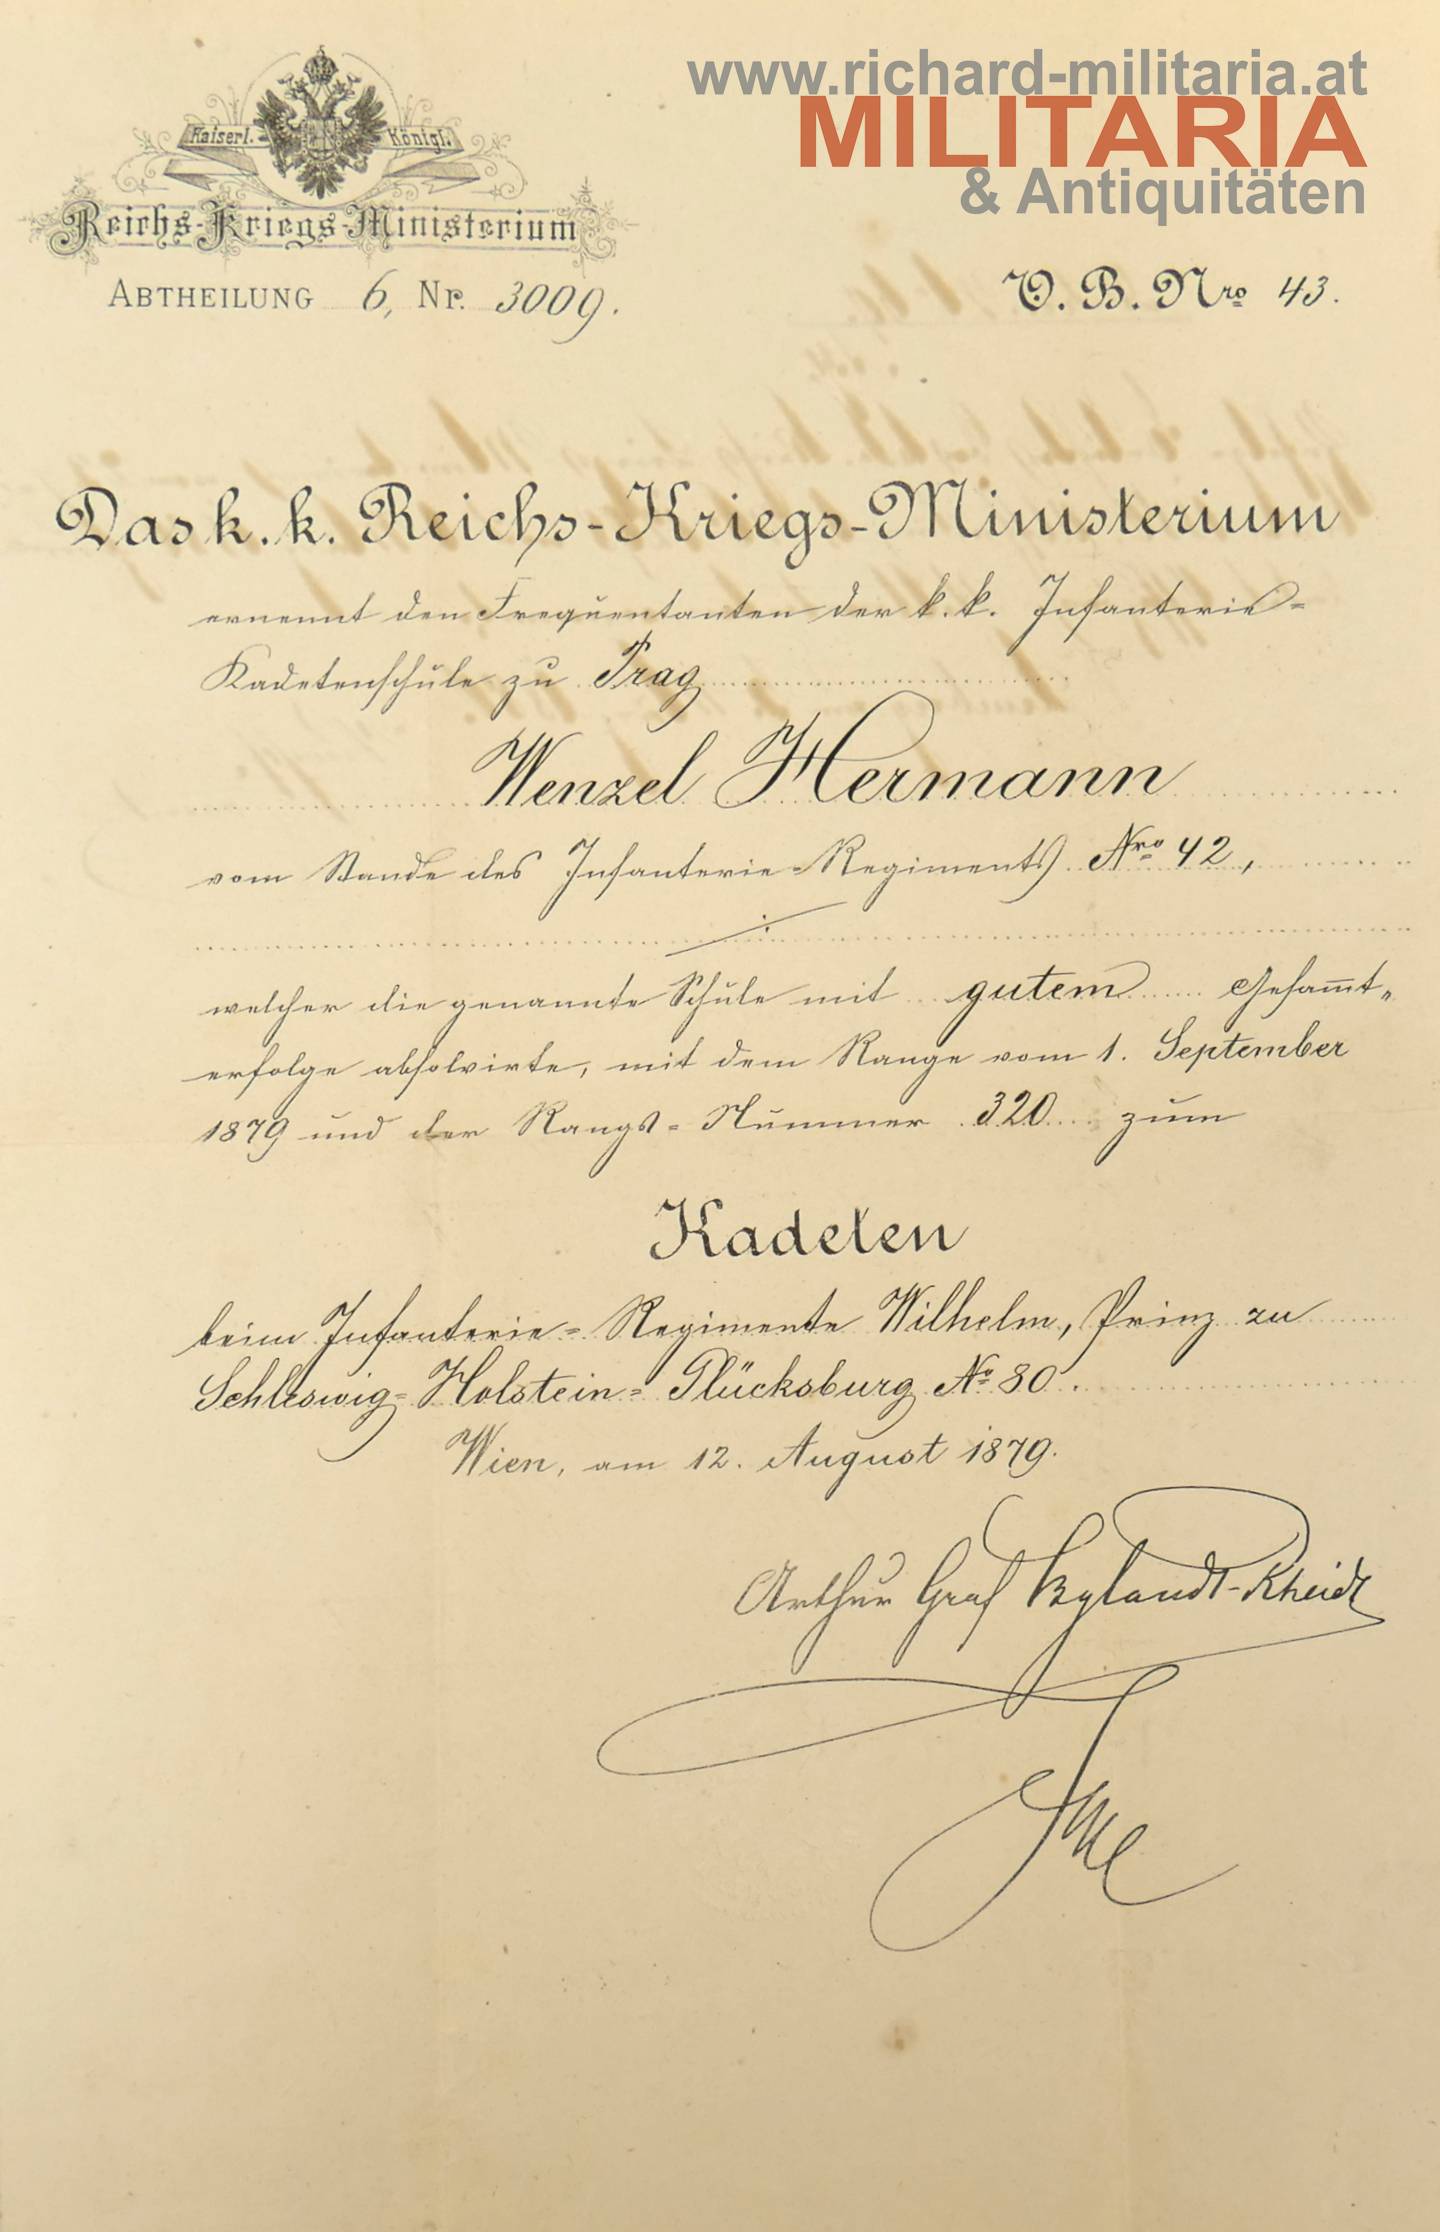 www.richard-militaria.at
MILITARIA
& Antiquitäten
Kaiserl. Königl.
Reichs-Kriegs-Ministerium
ABTHEILUNG 6, Nr. 3009.
V. B. Nro 43.
Das k. k. Reichs-Kriegs-Ministerium
ernennt den Frequentanten der k. k. Infanterie-
Kadetenschule zu Prag
Wenzel Hermann
vom Stande des Infanterie-Regiments Nro 42,
welcher die genannte Schule mit gutem Gesam̅t-
erfolge absolvirte, mit dem Range vom 1. September
1879 und der Rangs-Nummer 320 zum
Kadeten
beim Infanterie-Regimente Wilhelm, Prinz zu
Schleswig-Holstein-Glücksburg No 80.
Wien, am 12. August 1879.
Arthur Graf Bylandt-Rheidt